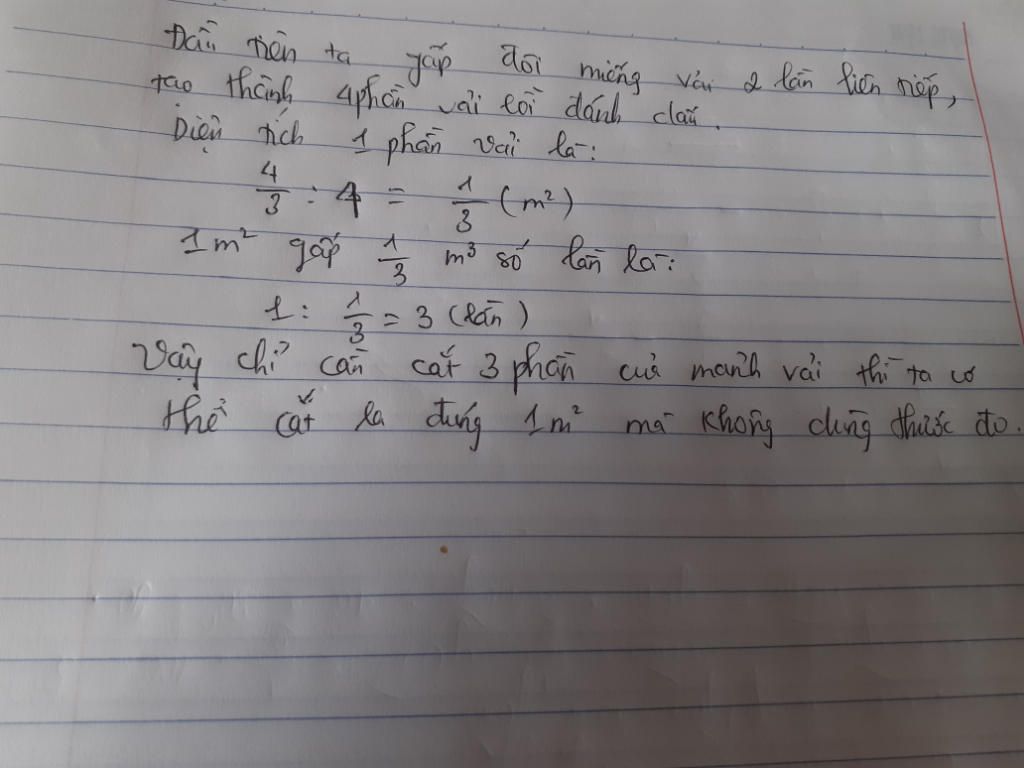 Đầu tiên ta gấp đôi miếng vải 2 lần liên tiếp,
tạo thành 4 phần vải rồi đánh dấu.
Diện tích 1 phần vải là:
4/3 : 4 = 1/3 (m²)
1m² gấp 1/3 m³ số lần là:
1 : 1/3 = 3 (lần)
Vậy chỉ cần cắt 3 phần của mảnh vải thì ta có
thể cắt ra đúng 1m² mà không dùng thước đo.